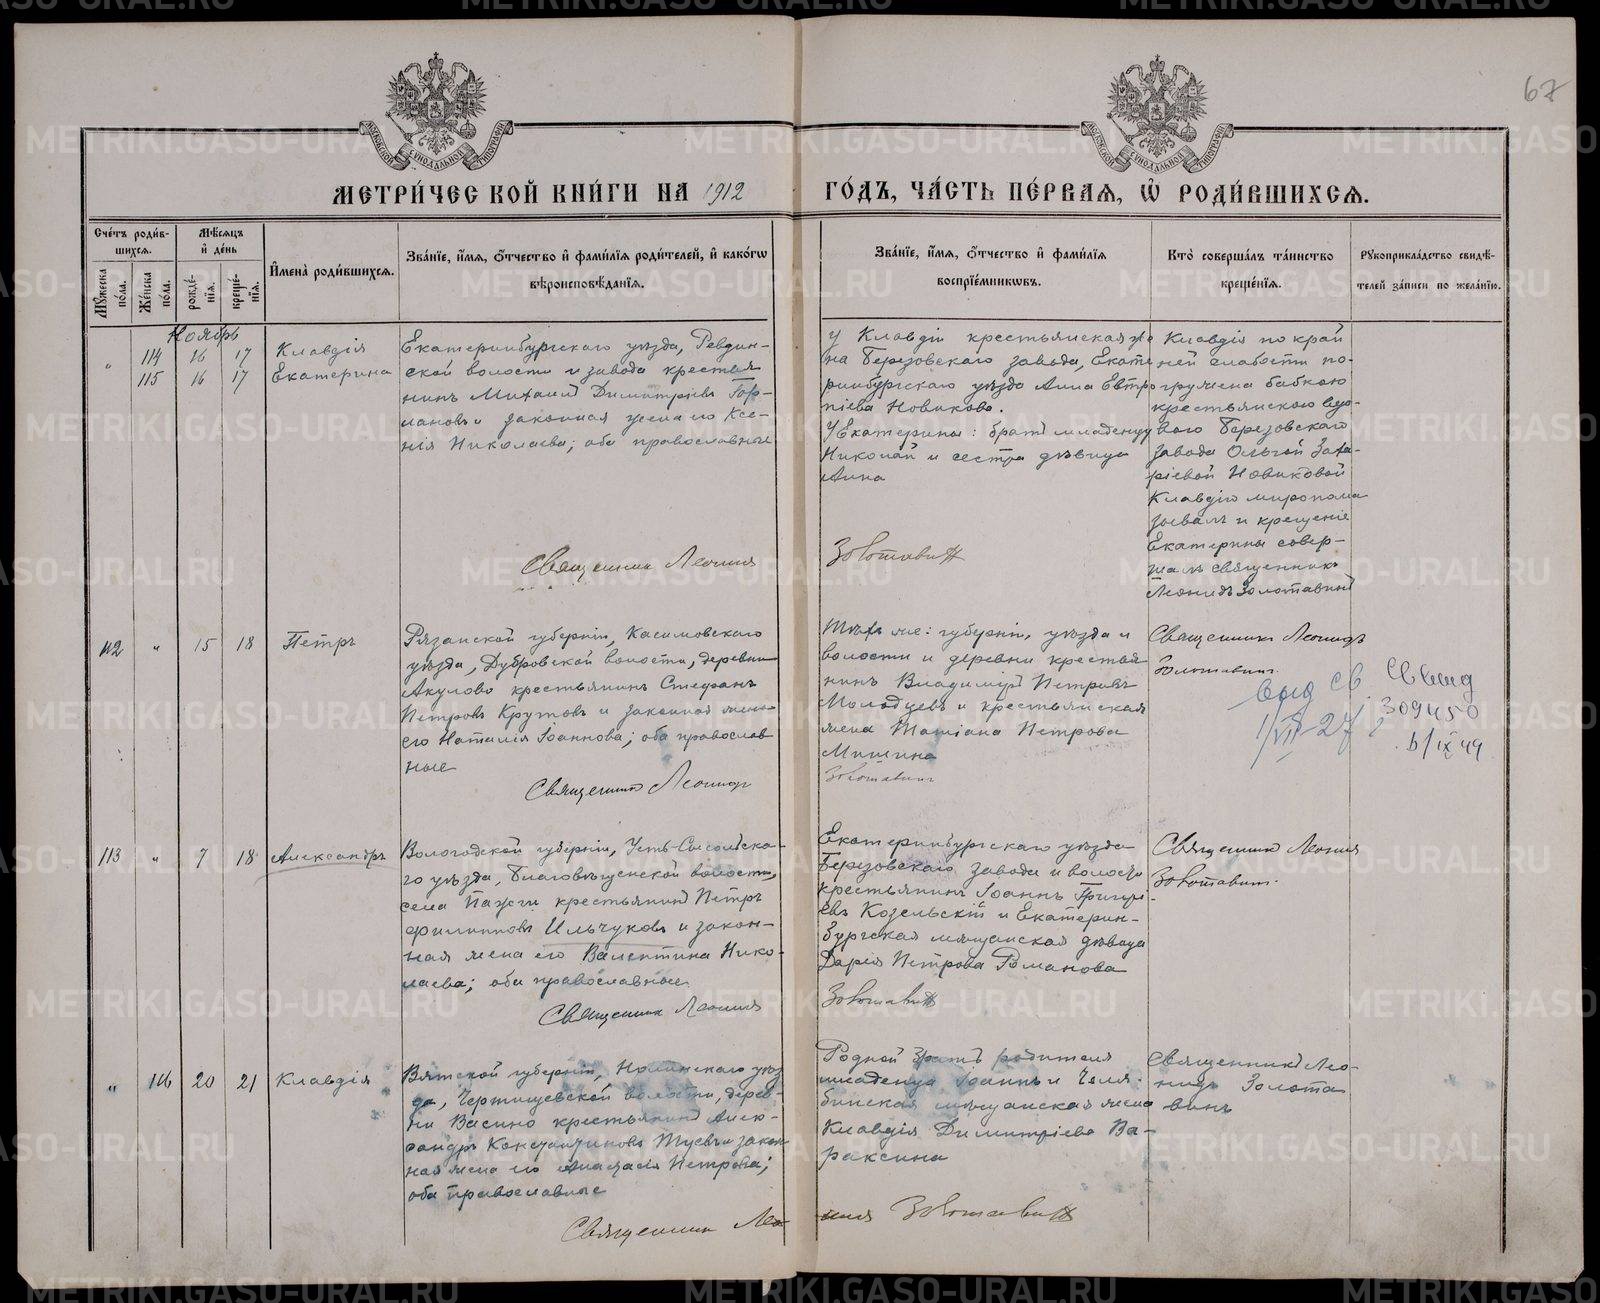 67
МЕТРИ́ЧЕСКОЙ КНИ́ГИ НА 1912
ГО́ДЪ, ЧА́СТЬ ПЕ́РВАЯ, Ѡ҆ РОДИ́ВШИХСЯ.
Сче́тъ роди́вшихся.
Мꙋ́жеска по́ла.
Же́нска по́ла.
Мѣ́сяцъ и҆ де́нь
рожде́нїя.
креще́нїя.
И҆мена̀ роди́вшихся.
Зва́нїе, и҆́мя, ѻ҆́тчество и҆ фами́лїя роди́телей, и҆ како́гѡ
вѣроисповѣ́данїя.
Зва́нїе, и҆́мя, ѻ҆́тчество и҆ фами́лїя
воспрїе́мникѡвъ.
Кто̀ соверша́лъ та́инство
креще́нїя.
Рꙋкоприкла́дство свидѣ́телей за́писи по жела́нїю.
Ноябрь
" 114 16 17 Клавдія
115 16 17 Екатерина
Екатеринбургскаго уѣзда, Ревдин-
ской волости и завода крестья
нинъ Михаилъ Димитріевъ
и законная жена его Ксе-
нія Николаева; оба православные
Священникъ Леонидъ
У Клавдіи крестьянская же
на Березовскаго завода, Екате
ринбургскаго уѣзда Анна Евтро
піева Новикова.
У Екатерины: братъ младенца
Николай и сестра дѣвица
Анна
Золотавинъ
Клавдія по край
ней слабости по-
гружена бабкою
крестьянскою вдо-
вою Березовскаго
завода Ольгой Заха-
ріевой Новиковой
Клавдію миропома
зывалъ и крещеніе
Екатерины совер-
шалъ священникъ
Леонидъ Золотавинъ
112 " 15 18 Петръ
Рязанской губерніи, Касимовскаго
уѣзда, Дубровской волости, деревни
Акулово крестьянинъ Стефанъ
Петровъ Крутовъ и законная жена
его Наталія Іоаннова; оба православ
ные
Священникъ Леонидъ
Тѣхъ же: губерніи, уѣзда и
волости и деревни крестья
нинъ Владиміръ Петровъ
Молодцевъ и крестьянская
жена Татіана Петрова
Мишина
Золотавинъ
Священникъ Леонидъ
Золотавинъ
Выд св.
1/VII-27
Свид
309450
6/IX 49
113 " 7 18 Александръ
Вологодской губерніи, Усть-Сысольска-
го уѣзда, Благовѣщенской волости,
села Пажги крестьянинъ Петръ
Филипповъ Ильчуковъ и закон-
ная жена его Валентина Нико-
лаева; оба православные
Священникъ Леонидъ
Екатеринбургскаго уѣзда
Березовскаго завода и волости
крестьянинъ Іоаннъ Григорі-
евъ Козельскій и Екатерин-
бургская мѣщанская дѣвица
Дарія Петрова Романова
Золотавинъ
Священникъ Леонидъ
Золотавинъ.
" 116 20 21 Клавдія
Вятской губерніи, Нолинскаго уѣз
да, Чертищевской волости, дерев-
ни Васино крестьянинъ Алек-
сандръ Константиновъ и закон
ная жена его Анастасія Петрова;
оба православные
Священникъ Леонидъ Золотавинъ
Родной братъ родителя
младенца Іоаннъ и Челя-
бинская мѣщанская жена
Клавдія Димитріева Ва-
раксина
Священникъ Лео-
нидъ Золота
винъ
METRIKI.GASO-URAL.RU